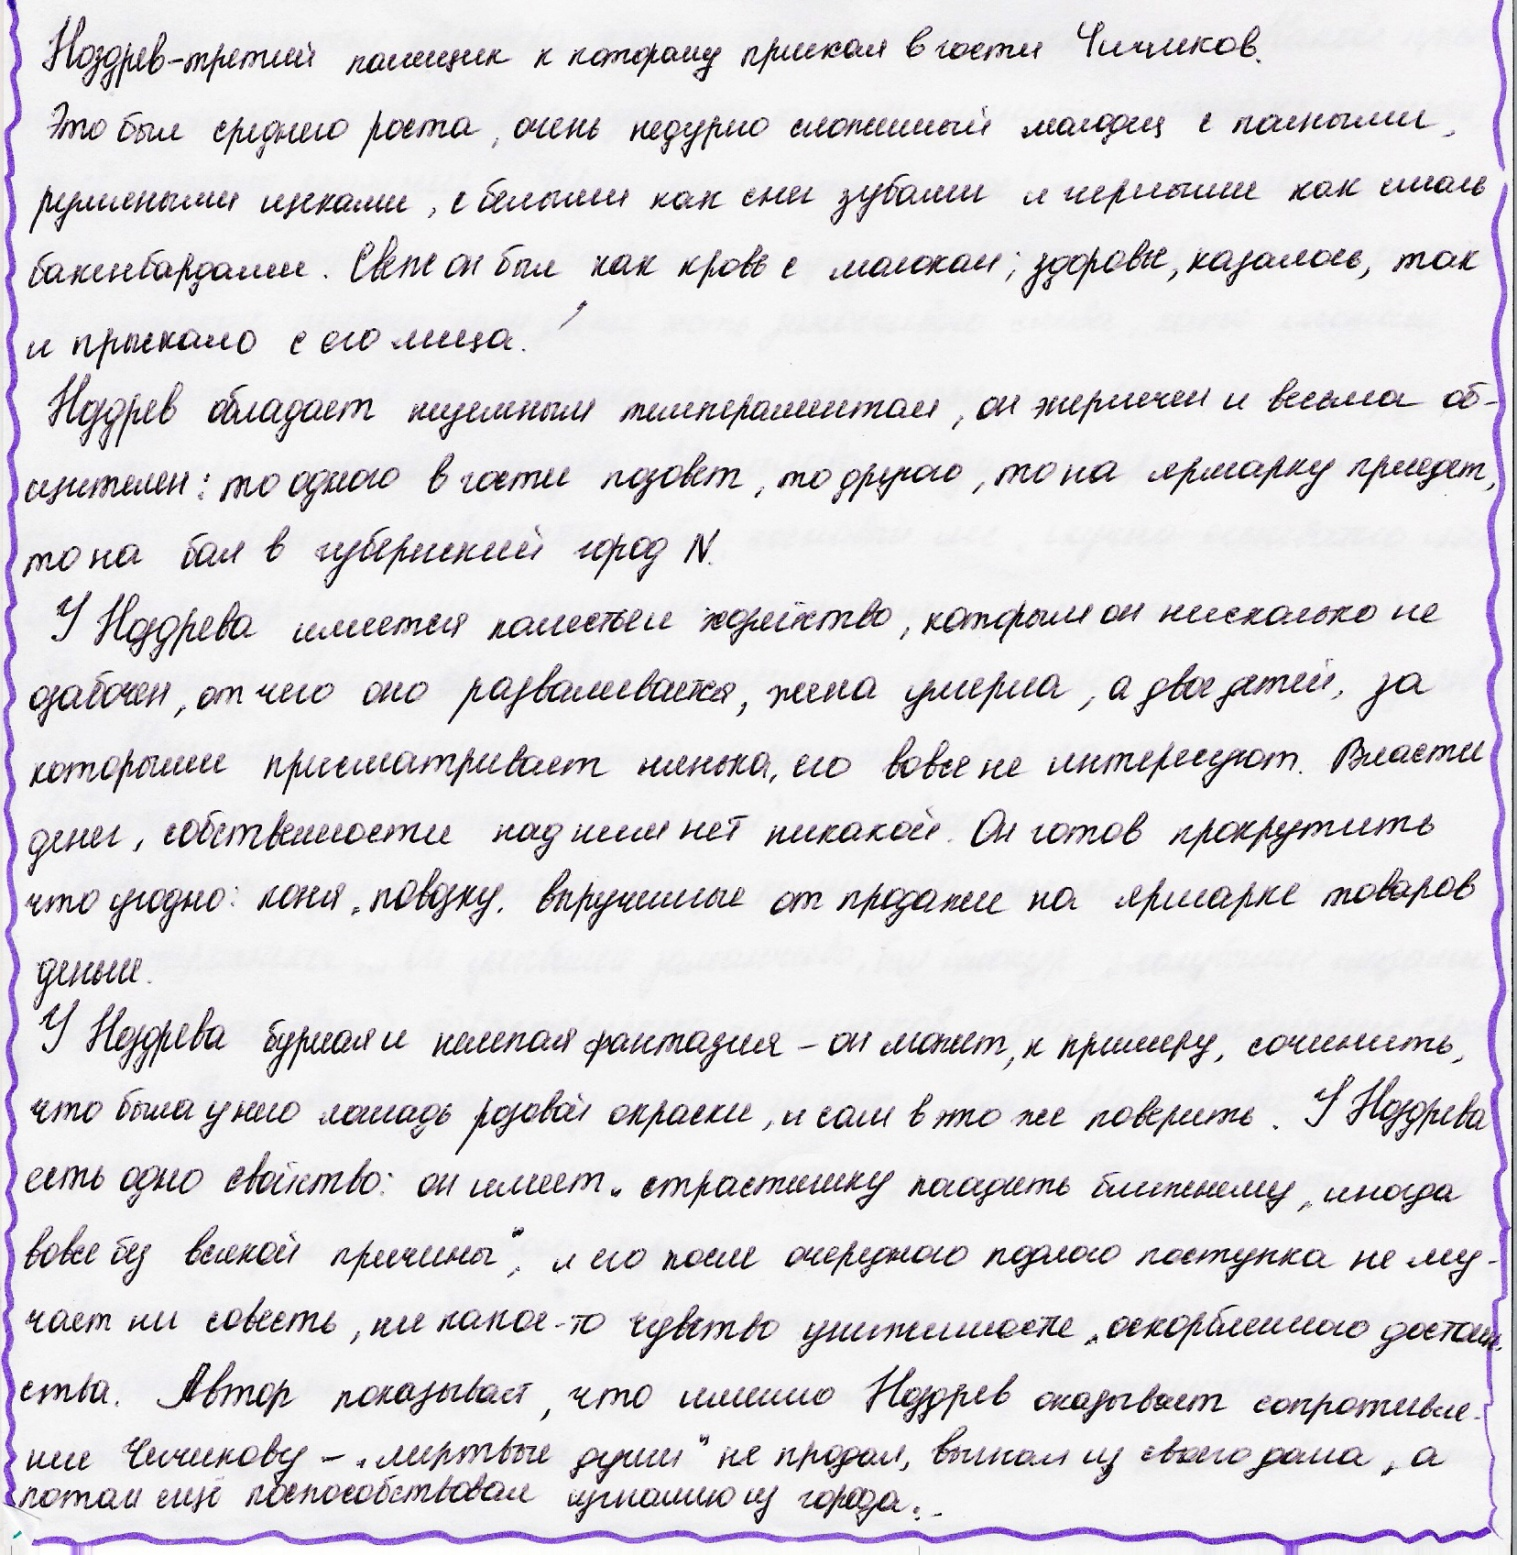 Ноздрев-третий помещик к которому приехал в гости Чичиков.
Это был среднего роста, очень недурно сложенный молодец с полными,
румяными щеками, с белыми как снег зубами и черными как смоль
бакенбардами. Свеж он был как кровь с молоком; здоровье, казалось, так
и прыскало с его лица.
Ноздрев обладает неуемным темпераментом, он энергичен и весьма об-
щителен: то одного в гости позовет, то другого, то на ярмарку приедет,
то на бал в губернский город N.
У Ноздрева имеется поместье и хозяйство, которым он нисколько не
озабочен, от чего оно разваливается, жена умерла, а двое детей, за
которыми присматривает нянька, его вовсе не интересуют. Власти
денег, собственности над ним нет никакой. Он готов прокрутить
что угодно: коня, повозку, вырученные от продажи на ярмарке товаров
деньги.
У Ноздрева бурная и нелепая фантазия – он может, к примеру, сочинить,
что была у него лошадь розовой окраски, и сам в это же поверить. У Ноздрева
есть одно свойство: он имеет „страстишку нагадить ближнему, иногда
вовсе без всякой причины", и его после очередного подлого поступка не му-
чает ни совесть, ни какое-то чувство униженности, оскорбленного достоин-
ства. Автор показывает, что именно Ноздрев оказывает сопротивле-
ние Чичикову – „мертвые души" не продал, выгнал из своего дома, а
потом ещё поспособствовал изгнанию из города.